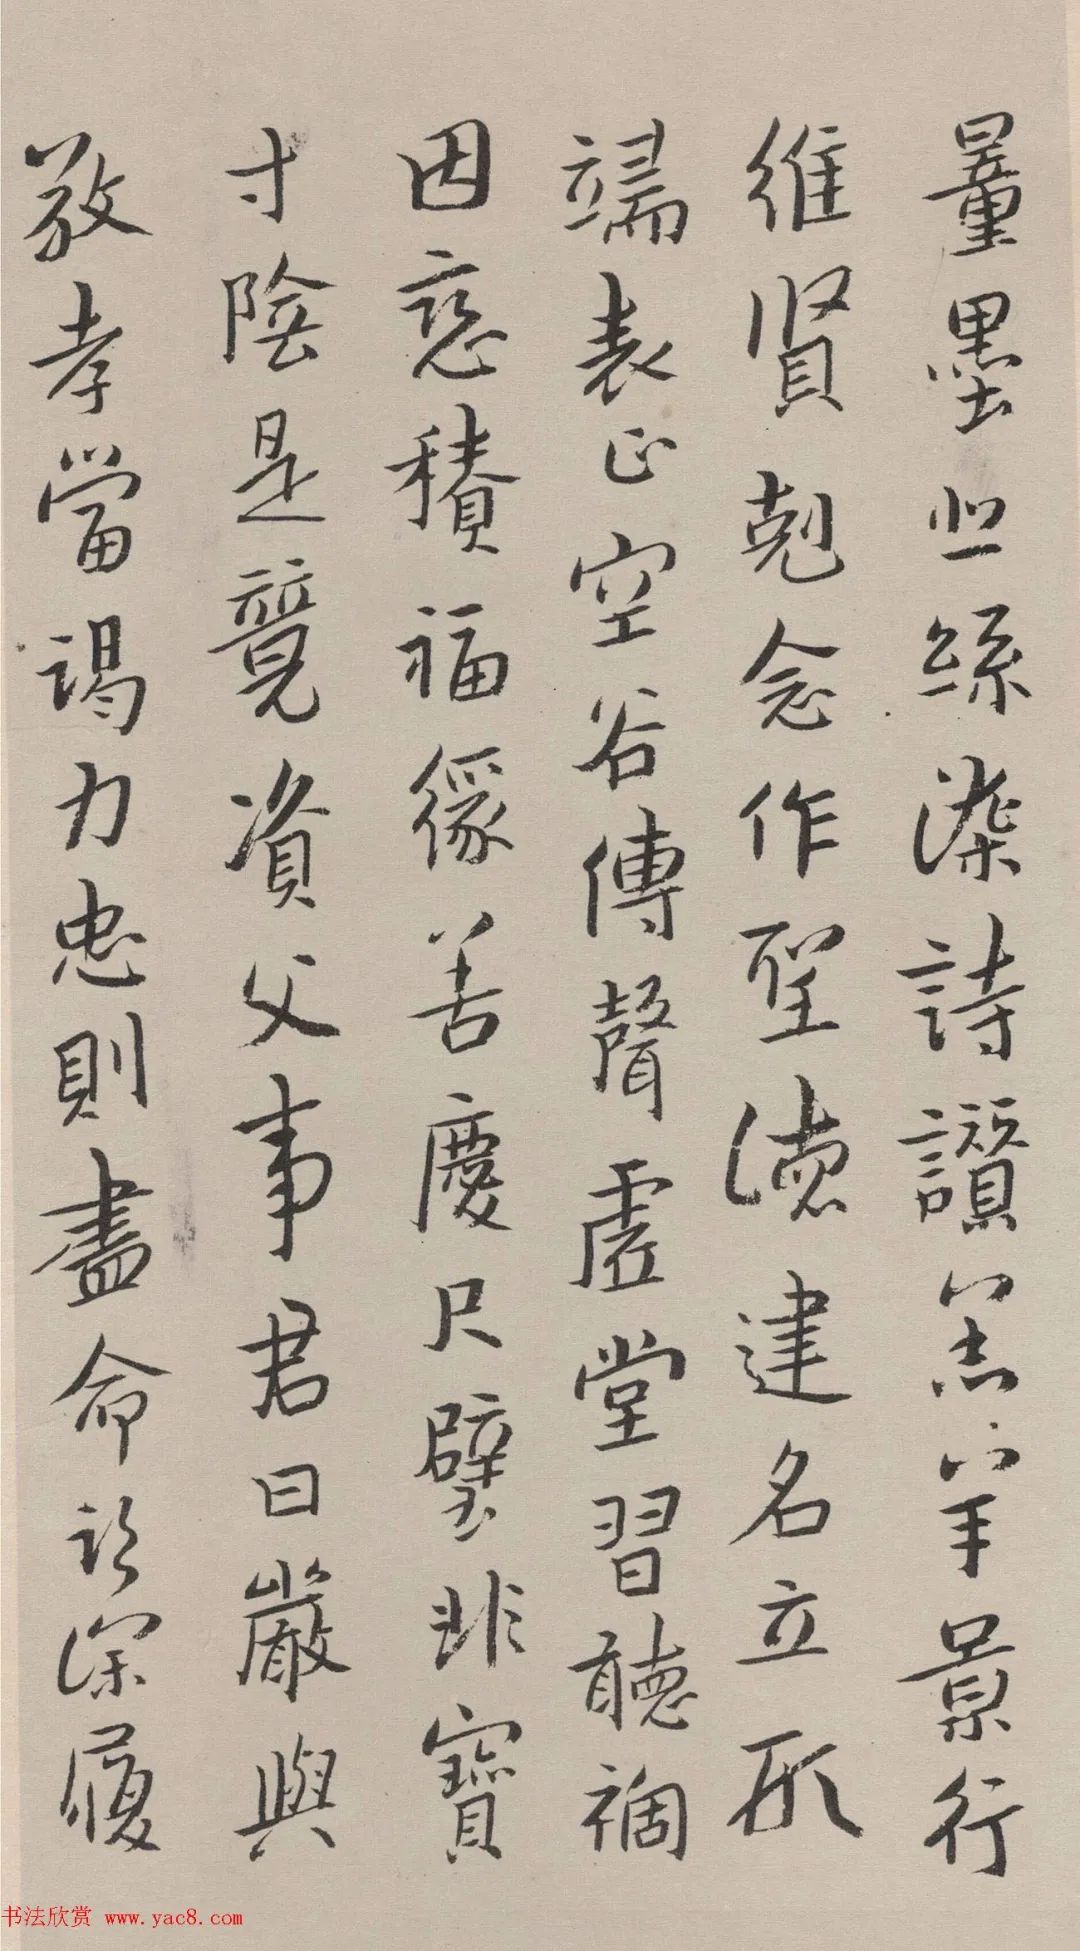 量墨悲絲染詩讚羔羊景行
維賢剋念作聖德建名立形
端表正空谷傳聲虛堂習聽禍
因惡積福緣善慶尺璧非寶
寸陰是競資父事君曰嚴與
敬孝當竭力忠則盡命臨深履
书法欣赏 www.yac8.com